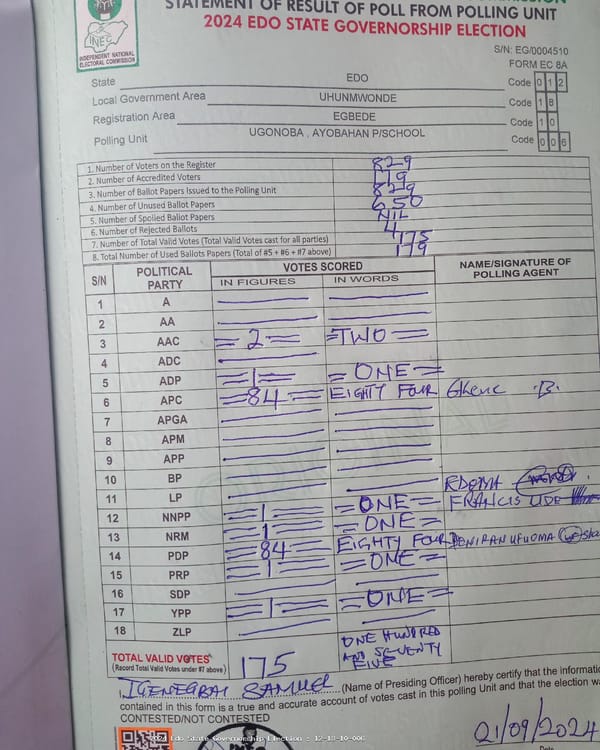 STATEMENT OF RESULT OF POLL FROM POLLING UNIT
2024 EDO STATE GOVERNORSHIP ELECTION
INEC
INDEPENDENT NATIONAL
ELECTORAL COMMISSION
S/N: EG/0004510
FORM EC 8A
State EDO Code 0 1 2
Local Government Area UHUNMWONDE Code 1 8
Registration Area EGBEDE Code 1 0
Polling Unit UGONOBA , AYOBAHAN P/SCHOOL Code 0 0 6
1. Number of Voters on the Register 829
2. Number of Accredited Voters 179
3. Number of Ballot Papers Issued to the Polling Unit 829
4. Number of Unused Ballot Papers 650
5. Number of Spoiled Ballot Papers NIL
6. Number of Rejected Ballots 4
7. Number of Total Valid Votes (Total Valid Votes cast for all parties) 175
8. Total Number of Used Ballots Papers (Total of #5 + #6 + #7 above) 179
S/N POLITICAL PARTY VOTES SCORED NAME/SIGNATURE OF POLLING AGENT
IN FIGURES IN WORDS
1 A
2 AA
3 AAC =2= =TWO=
4 ADC
5 ADP =1= =ONE=
6 APC =84= EIGHTY FOUR B.
7 APGA
8 APM
9 APP
10 BP
11 LP
12 NNPP =1= =ONE= FRANCIS
13 NRM =1= =ONE=
14 PDP =84= EIGHTY FOUR
15 PRP =1= =ONE=
16 SDP
17 YPP =1= =ONE=
18 ZLP
TOTAL VALID VOTES
(Record Total Valid Votes under #7 above) 175 ONE HUNDRED AND SEVENTY FIVE
SAMUEL (Name of Presiding Officer) hereby certify that the informatio
contained in this form is a true and accurate account of votes cast in this polling Unit and that the election wa
CONTESTED/NOT CONTESTED
21/09/2024
Date
2024 Edo State Governorship Election : 12-18-10-006